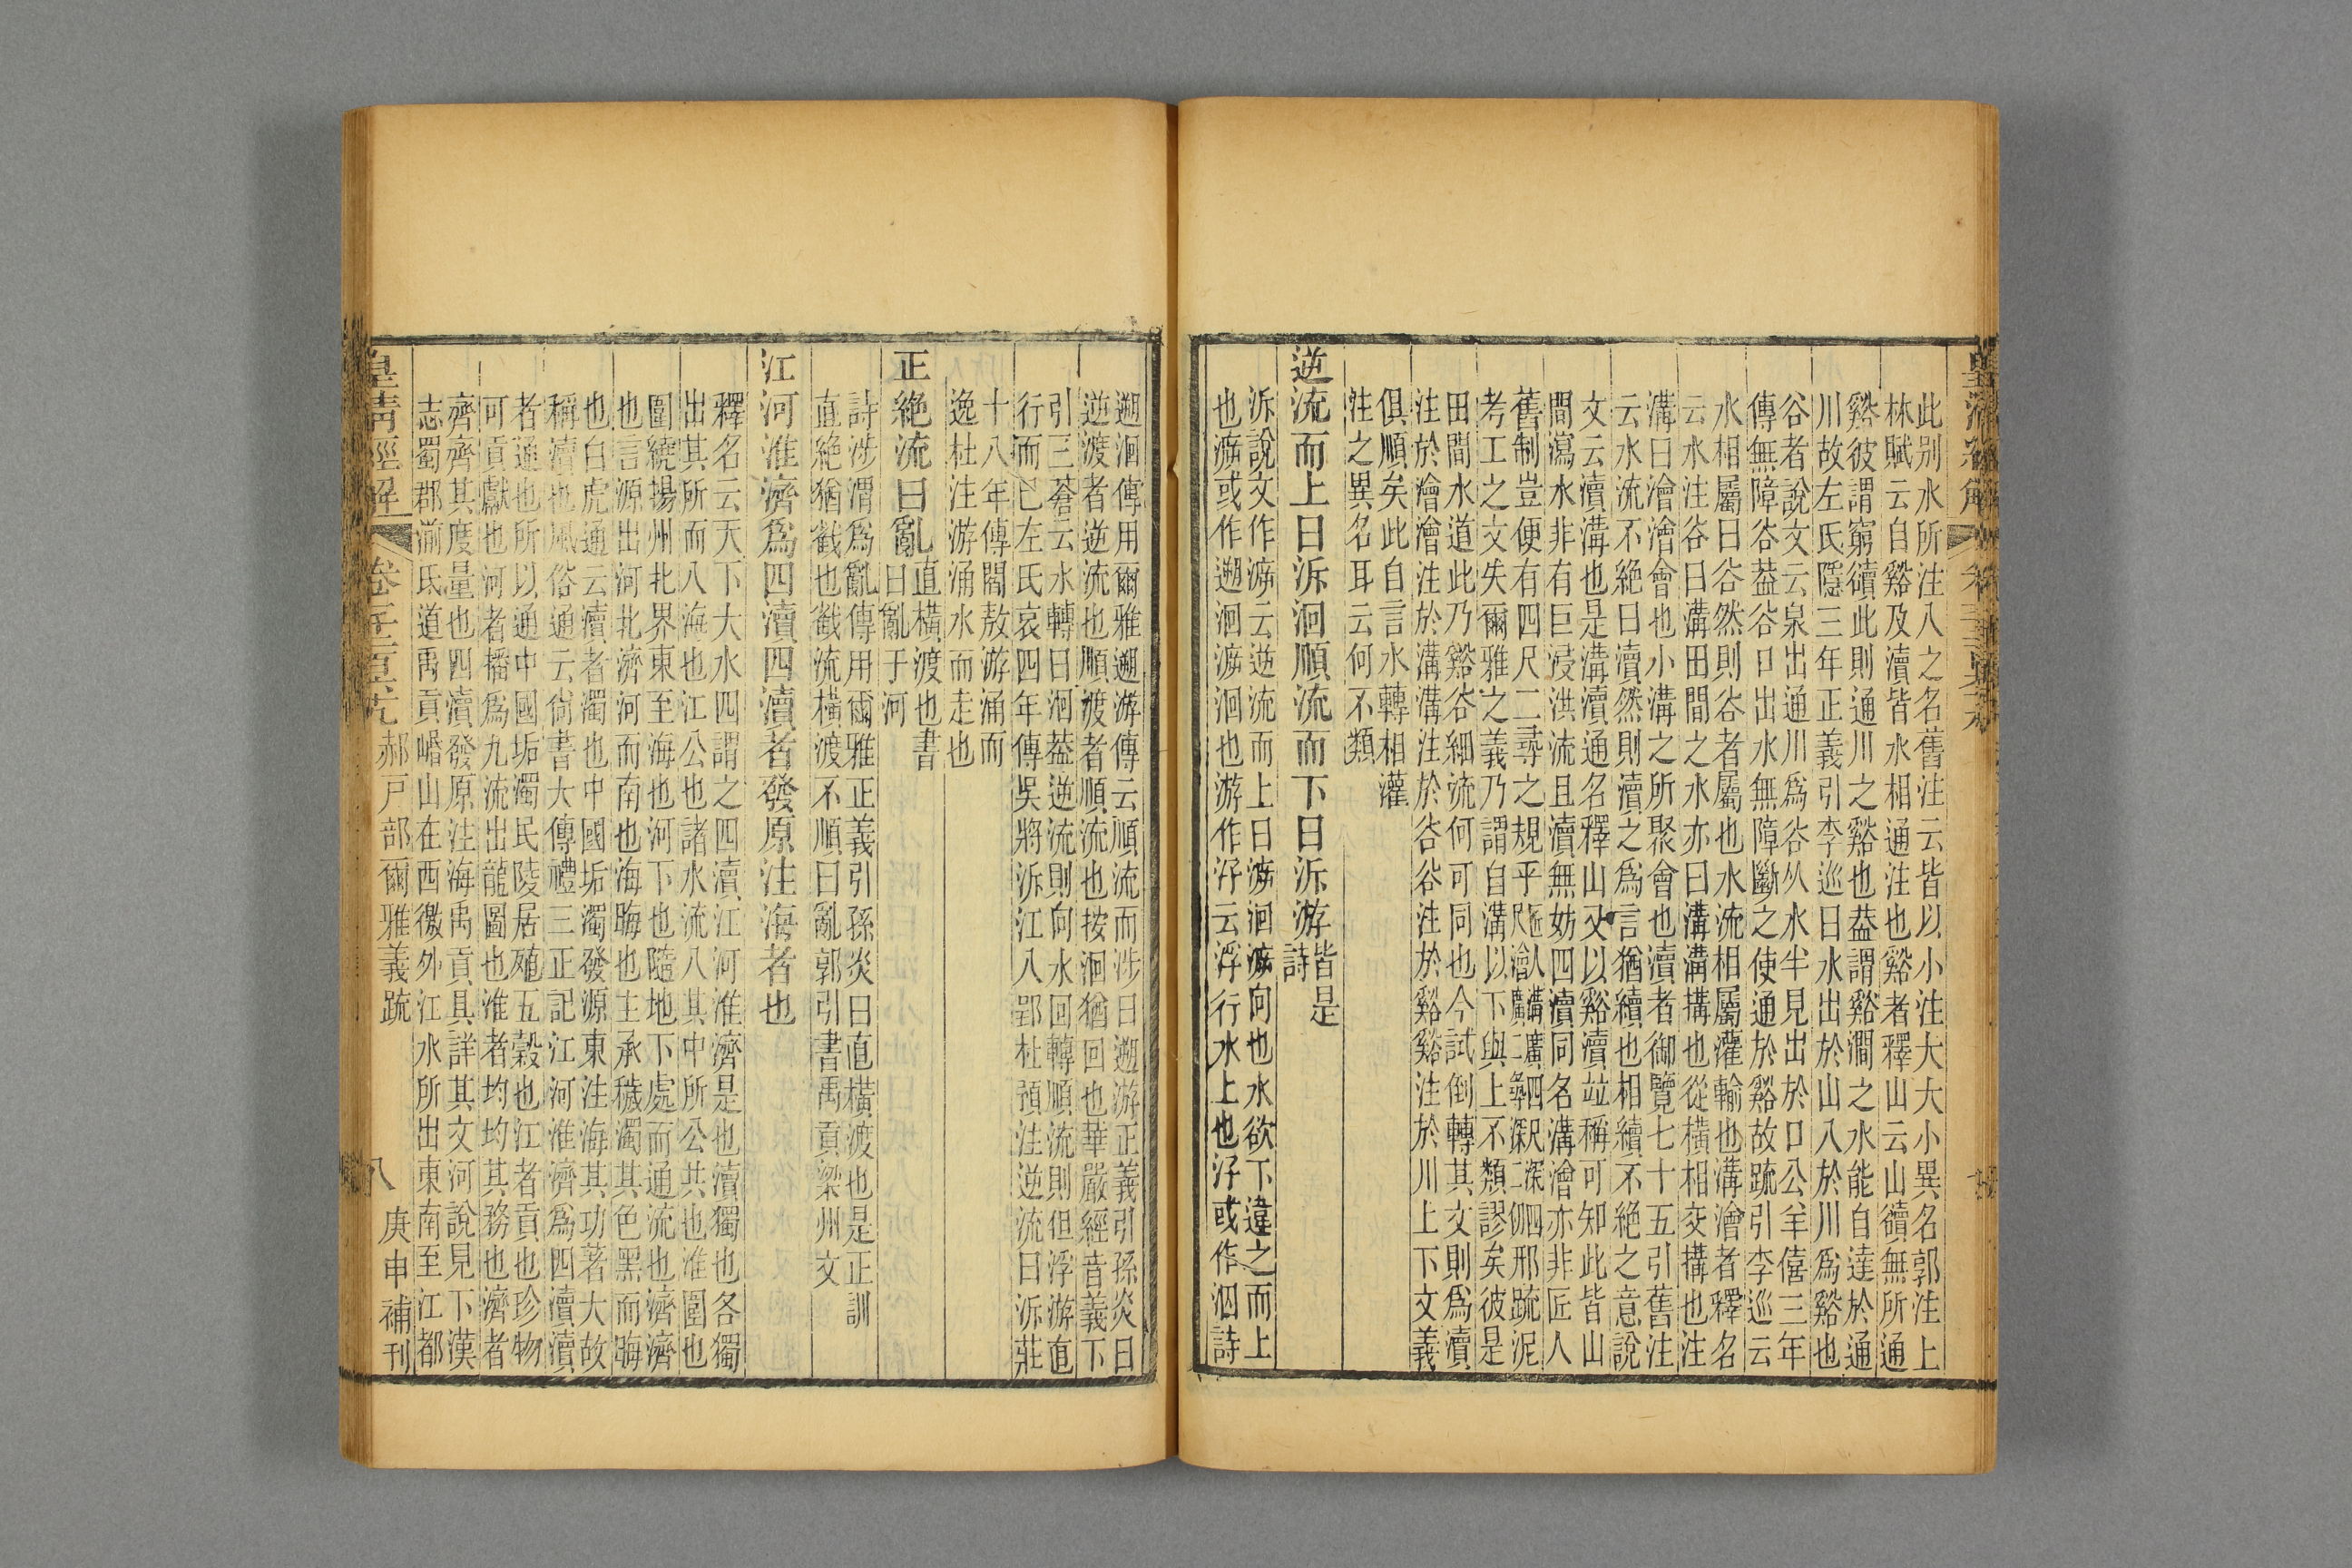 此別水所注入之名舊注云皆以小注大大小異名郭注上
林賦云自谿及瀆皆水相通注也谿者釋山云山䜠無所通
谿彼謂窮䜠此則通川之谿也葢謂谿澗之水能自達於通
川故左氏隱三年正義引李巡曰水出於山入於川爲谿也
谷者說文云泉出通川爲谷从水半見出於口公羊僖三年
傳無障谷葢谷口出水無障斷之使通於谿故疏引李巡云
水相屬曰谷然則谷者屬也水流相屬灌輸也溝澮者釋名
云水注谷曰溝田間之水亦曰溝溝搆也從橫相交搆也注
溝曰澮澮會也小溝之所聚會也瀆者御覽七十五引舊注
云水流不絶曰瀆然則瀆之爲言猶續也相續不絶之意說
文云瀆溝也是溝瀆通名釋山又以谿瀆同名竝稱可知此皆山
間瀉水非有巨浸洪流且瀆無妨四瀆同名溝澮亦非匠人
舊制豈便有四尺二尋之規乎匠人溝廣四尺深四尺澮廣二尋深二仞邢疏泥
考工之文失爾雅之義乃謂自溝以下與上不類謬矣彼是
田間水道此乃谿谷細流何可同也今試倒轉其文則爲瀆
注於澮澮注於溝溝注於谷谷注於谿谿注於川上下文義
俱順矣此自言水轉相灌
注之異名耳云何不類
逆流而上曰泝洄順流而下曰泝游皆是
詩
泝說文作㴑云逆流而上曰㴑洄㴑向也水欲下違之而上
也㴑或作遡洄㴑洄也游作汓云浮行水上也汓或作泅詩
遡洄傳用爾雅遡游傳云順流而涉曰遡游正義引孫炎曰
逆渡者逆流也順渡者順流也按洄猶回也華嚴經音義下
引三蒼云水轉曰洄葢逆流則向水回轉順流則但浮游直
行而已左氏哀四年傳吳將泝江入郢杜預注逆流曰泝莊
十八年傳閻敖游涌而
逸杜注游涌水而走也
正絶流曰亂直橫渡也書
曰亂于河
詩涉渭爲亂傳用爾雅正義引孫炎曰直橫渡也是正訓
直絶猶截也截流橫渡不順曰亂郭引書禹貢梁州文
江河淮濟爲四瀆四瀆者發原注海者也
釋名云天下大水四謂之四瀆江河淮濟是也瀆獨也各獨
出其所而入海也江公也諸水流入其中所公共也淮圍也
圍繞揚州北界東至海也河下也隨地下處而通流也濟濟
也言源出河北濟河而南也海晦也主承穢濁其色黑而晦
也白虎通云瀆者濁也中國垢濁發源東注海其功著大故
稱瀆也風俗通云尙書大傳禮三正記江河淮濟爲四瀆瀆
者通也所以通中國垢濁民陵居殖五穀也江者貢也珍物
可貢獻也河者播爲九流出龍圖也淮者均均其務也濟者
齊齊其度量也四瀆發原注海禹貢具詳其文河說見下漢
志蜀郡湔氐道禹貢㟭山在西徼外江水所出東南至江都
皇清經解 郝戸部爾雅義疏 八 庚申補刊